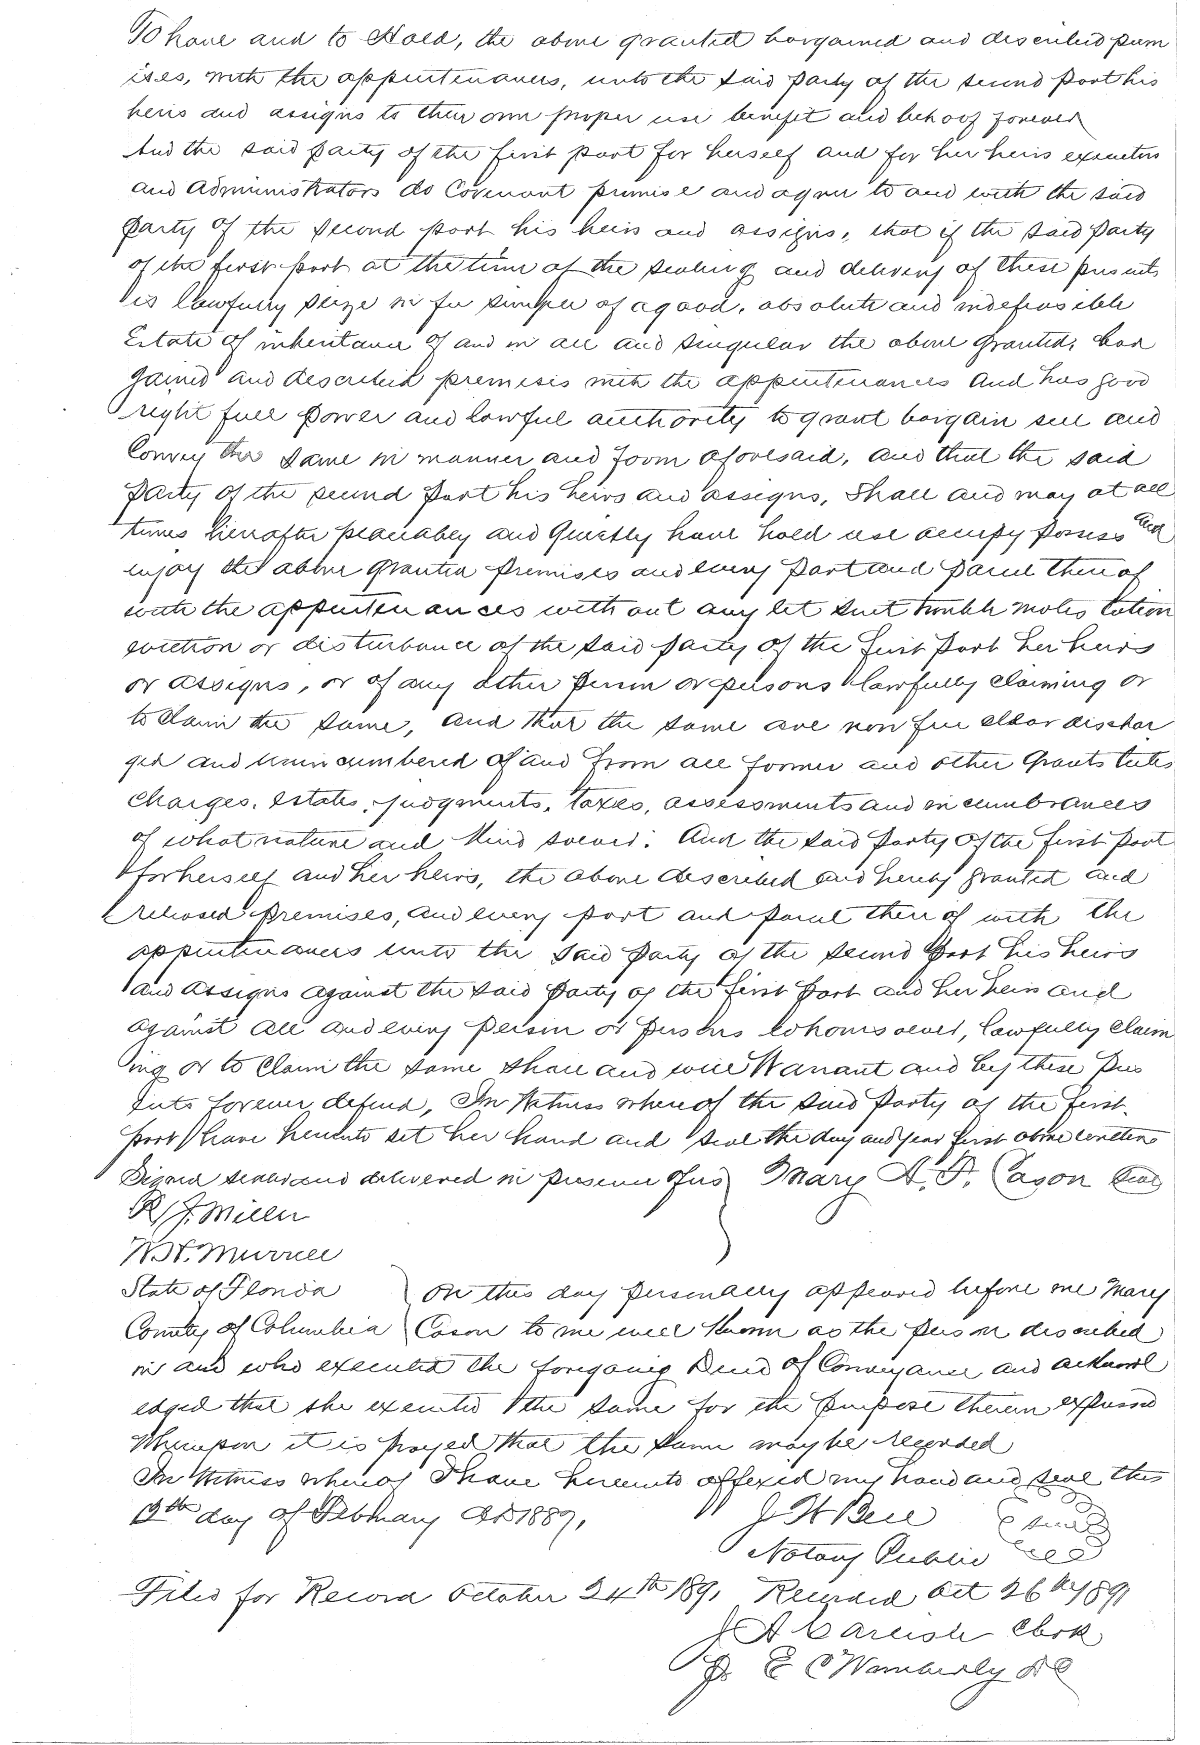 To have and to Hold, the above granted bargained and described prem
ises, with the appurtenances, unto the said party of the second part his
heirs and assigns to their own proper use benefit and behoof forever
And the said party of the first part for herself and for her heirs executors
and Administrators do Covenant promise and agree to and with the said
party of the second part his heirs and assigns, that if the said party
of the first part at the time of the sealing and delivery of these presents
is lawfully seize in fee simple of a good, absolute and indefeasible
Estate of inheritance of and in all and singular the above granted, bar
gained and described premises with the appurtenances and has good
right full power and lawful authority to grant bargain sell and
Convey the same in manner and form aforesaid, and that the said
party of the second part his heirs and assigns, shall and may at all
times hereafter peaceabley and Quietly have hold use occupy possess and
enjoy the above granted premises and every part and parcel there of
with the appurtenances with out any let suit trouble moles tation
eviction or disturbance of the said party of the first part her heirs
or assigns, or of any other person or persons lawfully claiming or
to claim the same, and that the same are now free clear dischar
ged and unincumbered of and from all former and other grants titles
charges, estates, judgments, taxes, assessments and incumbrances
of what nature and kind soever: And the said party of the first part
for herself and her heirs, the above described and hereby granted and
released premises, and every part and parcel there of with the
appurtenances unto the said party of the second part his heirs
and assigns against the said party of the first part and her heirs and
against all and every person or persons whomsoever, lawfully claim
ing or to claim the same shall and will Warrant and by these pres
ents forever defend, In Witness where of the said party of the first
part have hereunto set her hand and seal the day and year first above written
Signed sealed and delivered in presence of us Mary A. F. Cason Seal
R. J. Miller
W. H. Murrell
State of Florida On this day personally appeared before me Mary
County of Columbia Cason to me well known as the person described
in and who executed the foregoing Deed of Conveyance and acknowl
edged that she executed the same for the purpose therein expressed
Whereupon it is prayed that the same may be recorded
In Witness where of I have hereunto affixed my hand and seal this
day of February AD 1889,
J H Bell seal
Notary Public
Filed for Record October 24th 1891 Recorded Oct 26th 1891
J A Carlisle Clerk
Pr E C Wimberly DC